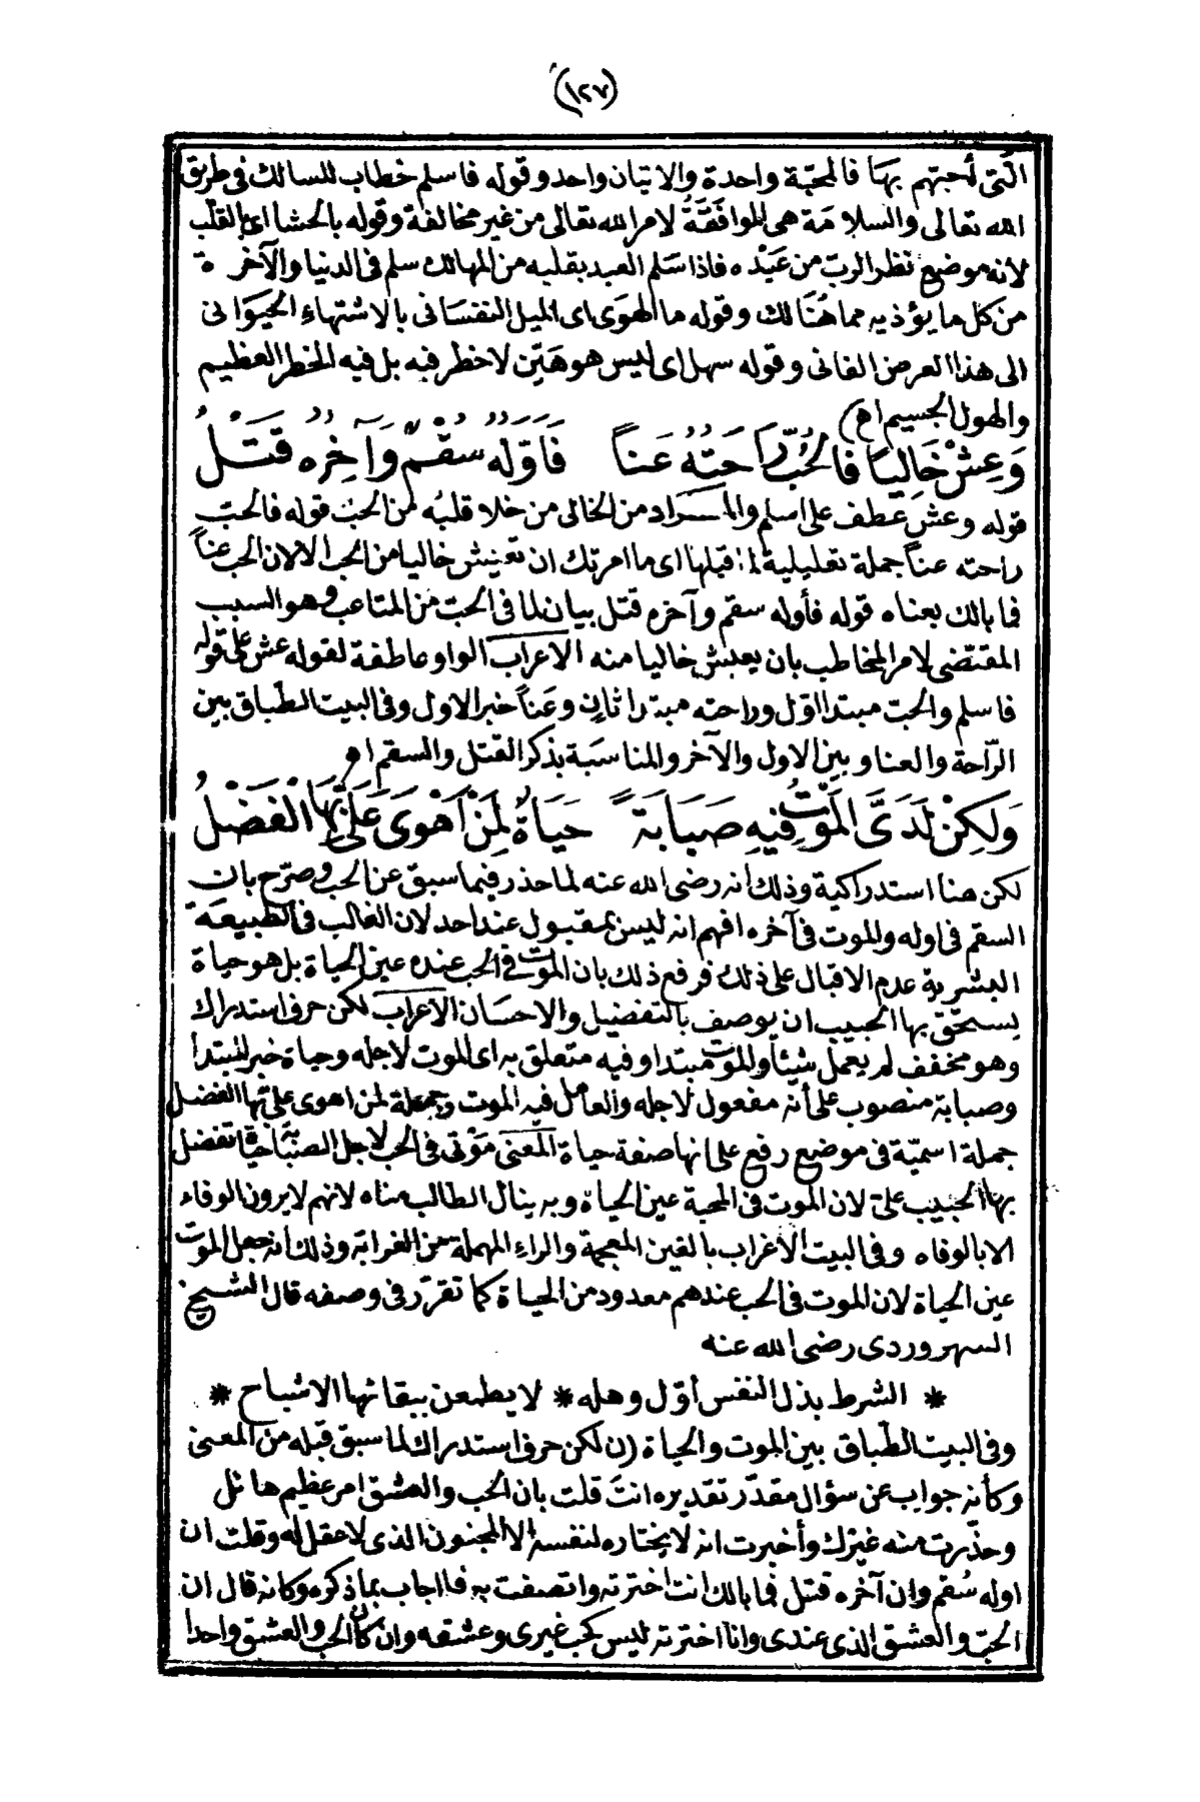 (١٢٧)
التى أحبتهم بها فالمحبة واحدة والاتيان واحد وقوله فاسلم خطاب للسالك فى طريق
الله تعالى والسلامة هى الموافقة لامر الله تعالى من غير مخالفة وقوله بالحشا اى بالقلب
لانه موضع نظر الرب من عبده فاذا سلم العبد بقلبه من المهالك سلم فى الدنيا والآخرة
من كل ما يؤذيه مما هنالك وقوله ما الهوى اى الميل النفسانى بالاشتهاء الحيوانى
الى هذا العرض الفانى وقوله سهل اى ليس هو هين لا خطر فيه بل فيه الخطر العظيم
والهول الجسيم اه)
وَعِشْ خَالِيًا فَالْحُبُّ رَاحَتُهُ عَنًا فَأَوَّلُه سُقْمٌ وَآخِرُهُ قَتْلُ
قوله وعش عطف على اسلم والمراد من الخالى من خلا قلبه من الحب قوله فالحب
راحته عناً جملة تعليلية لما قبلها اى ما امرتك ان تعيش خاليا من الحب الا لان الحب عناً
فما بالك بعناه قوله فأوله سقم وآخره قتل بيان لما فى الحب من المتاعب وهو السبب
المقتضى لامر المخاطب بان يعيش خاليا منه الاعراب الواو عاطفة لقوله عش على قوله
فاسلم والحب مبتدا اول وراحته مبتدا ثان وعناً خبر الاول وفى البيت الطباق بين
الرّاحة والعنا وبين الاول والآخر والمناسبة بذكر القتل والسقم اه
وَلكِنْ لَدَىَّ الْمَوْتُ فِيهِ صَبَابَةً حَيَاةٌ لِمَنْ أَهْوَى عَلَىَّ بِهَا الْفَضْلُ
لكن هنا استدراكية وذلك انه رضى الله عنه لما حذر فيما سبق عن الحب وصرّح بان
السقم فى اوله والموت فى آخره افهم انه ليس بمقبول عند احد لان الغالب فى الطبيعة
البشرية عدم الاقبال على ذلك فرفع ذلك بان الموت فى الحب عنده عين الحياة بل هو حياة
يستحق بها الحبيب ان يوصف بالتفضيل والاحسان الاعراب لكن حرف استدراك
وهو مخفف لم يعمل شيئا والموت مبتدا وفيه متعلق به اى الموت لاجله وحياة خبر المبتدأ
وصبابة منصوب على أنه مفعول لاجله والعامل فيه الموت وجملة لمن اهوى على بها الفضل
جملة اسميّة فى موضع رفع على انها صفة حياة المعنى موتى فى الحب لاجل الصبابة حياة تفضل
بها الحبيب علىّ لان الموت فى المحبة عين الحياة وبه ينال الطالب مناه لانهم لا يرون الوفاء
الا بالوفاه وفى البيت الاغراب بالغين المعجمة والراء المهملة من الغرابة وذلك أنه جعل الموت
عين الحياة لان الموت فى الحب عندهم معدود من الحياة كما تقرّر فى وصفه قال الشيخ
السهروردى رضى الله عنه
* الشرط بذل النفس أوّل وهله * لا يطمعن ببقائها الاشباح *
وفى البيت الطباق بين الموت والحياة (ن لكن حرف استدراك لما سبق قبله من المعنى
وكأنه جواب عن سؤال مقدّر تقديره انتَ قلت بان الحب والعشق امر عظيم هائل
وحذّرت منه غيرك وأخبرت انه لا يختاره لنفسه الا المجنون الذى لا عقل له وقلت ان
اوله سُقم وان آخره قتل فما بالك انت اخترته واتصفت به فاجاب بما ذكره وكانه قال ان
الحبّ والعشق الذى عندى وانا اخترته ليس كحب غيرى وعشقه وان كان الحب والعشق واحدا